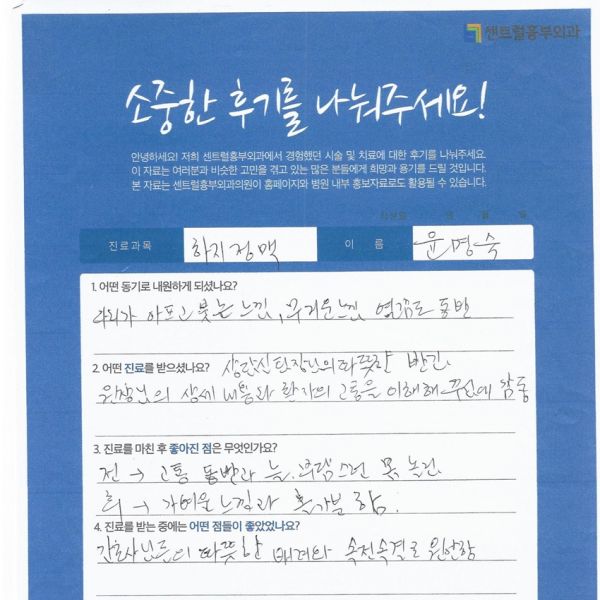 센트럴흉부외과
소중한 후기를 나눠주세요!
안녕하세요! 저희 센트럴흉부외과에서 경험했던 시술 및 치료에 대한 후기를 나눠주세요.
이 자료는 여러분과 비슷한 고민을 겪고 있는 많은 분들에게 희망과 용기를 드릴 것입니다.
본 자료는 센트럴흉부외과의원이 홈페이지와 병원 내부 홍보자료로도 활용될 수 있습니다.
작성일 년 월 일
진료과목 하지정맥 이 름 윤명숙
1. 어떤 동기로 내원하게 되셨나요?
다리가 아프고 붓는 느낌, 무거운 느낌 열감도 동반
2. 어떤 진료를 받으셨나요? 상담실 의 따뜻한 반김
원장님의 상세 내용과 환자의 고통을 이해해 주심에 감동
3. 진료를 마친 후 좋아진 점은 무엇인가요?
전 → 고통 동반과 늘 부담스런 몸
후 → 가벼운 느낌과 홀가분 함.
4. 진료를 받는 중에는 어떤 점들이 좋았었나요?
간호사님들의 따뜻한 배려와 속전속결로 편안함